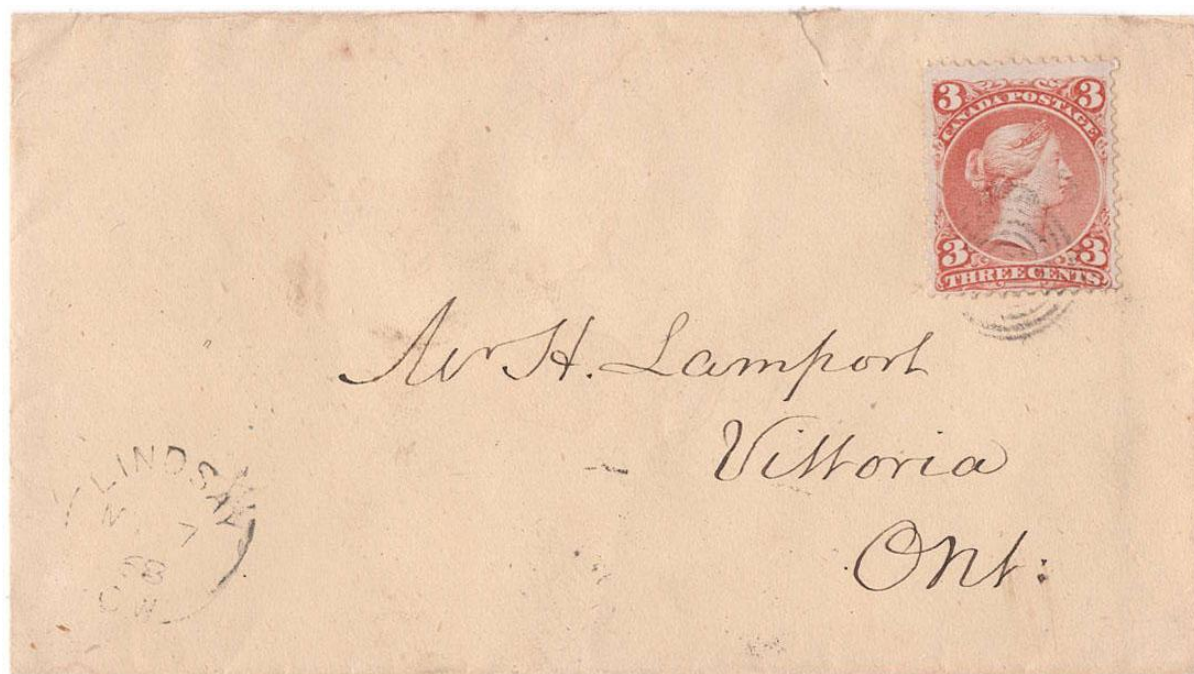 3 CANADA POSTAGE 3
3 3
THREE CENTS
Mr H. Lamport
Vittoria
Ont:
LINDSAY
7
68
C.W